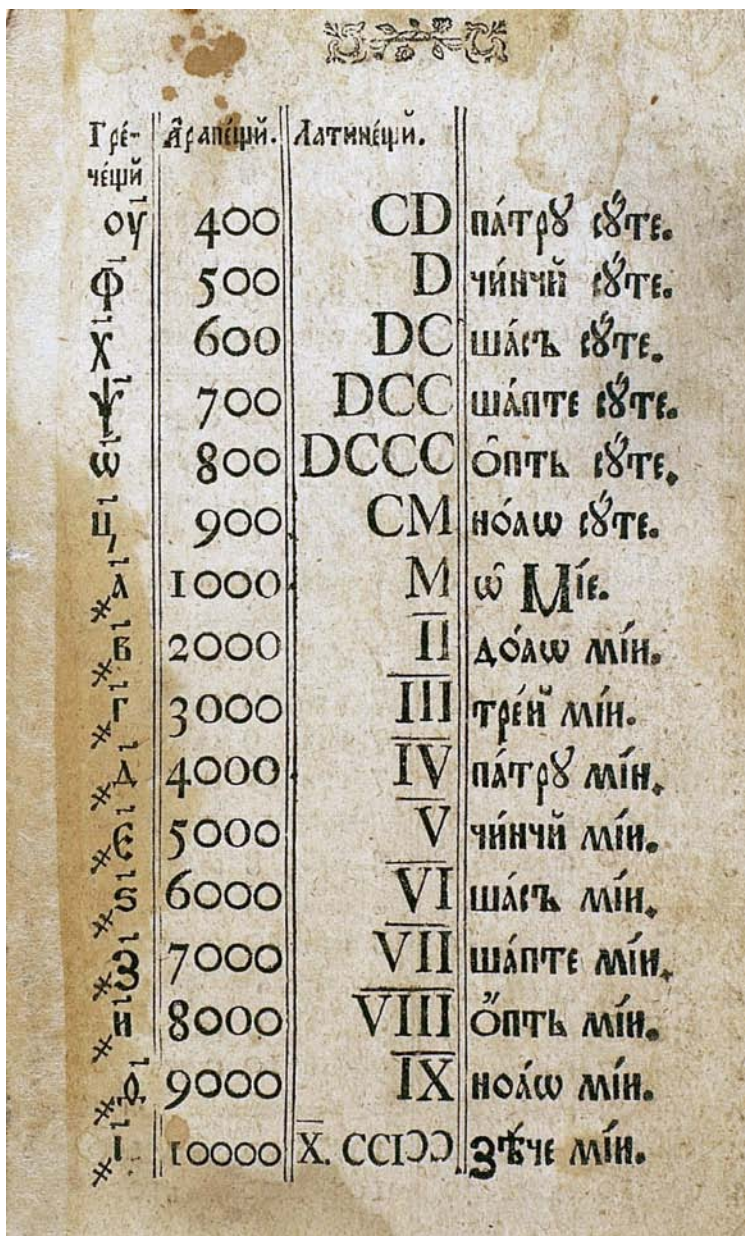 Грé- А҆рапéщй. Латинéщй.
чéщй
оу҃ 400 CD пáтрꙋ сꙋ́те.
ф҃ 500 D чи́нчй сꙋ́те.
х҃ 600 DC шáсъ сꙋ́те.
ѱ҃ 700 DCC шáпте сꙋ́те.
ѡ҃ 800 DCCC ȏпть сꙋ́те.
ц҃ 900 CM нóаѡ сꙋ́те.
҂а҃ 1000 M ѡ̑ Мíе.
҂в҃ 2000 I̅I̅ дóаѡ мíи.
҂г҃ 3000 I̅I̅I̅ трéй мíи.
҂д҃ 4000 I̅V̅ пáтрꙋ мíи.
҂є҃ 5000 V̅ чи́нчй мíи.
҂ѕ҃ 6000 V̅I̅ шáсъ мíи.
҂з҃ 7000 V̅I̅I̅ шáпте мíи.
҂и҃ 8000 V̅I̅I̅I̅ о҆́пть мíи.
҂ѳ҃ 9000 I̅X̅ ноáѡ мíи.
҂і҃ 10000 X̅. CCIƆƆ. Зѣ́че мíи.